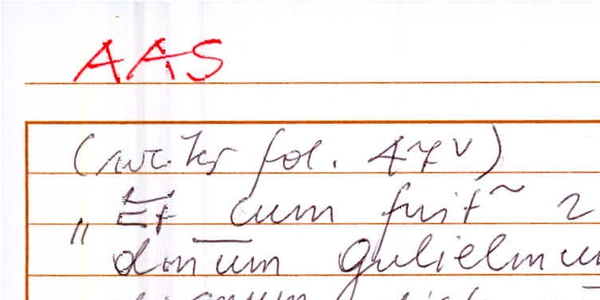 AAS
(weiter fol. 47v)
„Et cum fuit~ 2
domum gulielmu